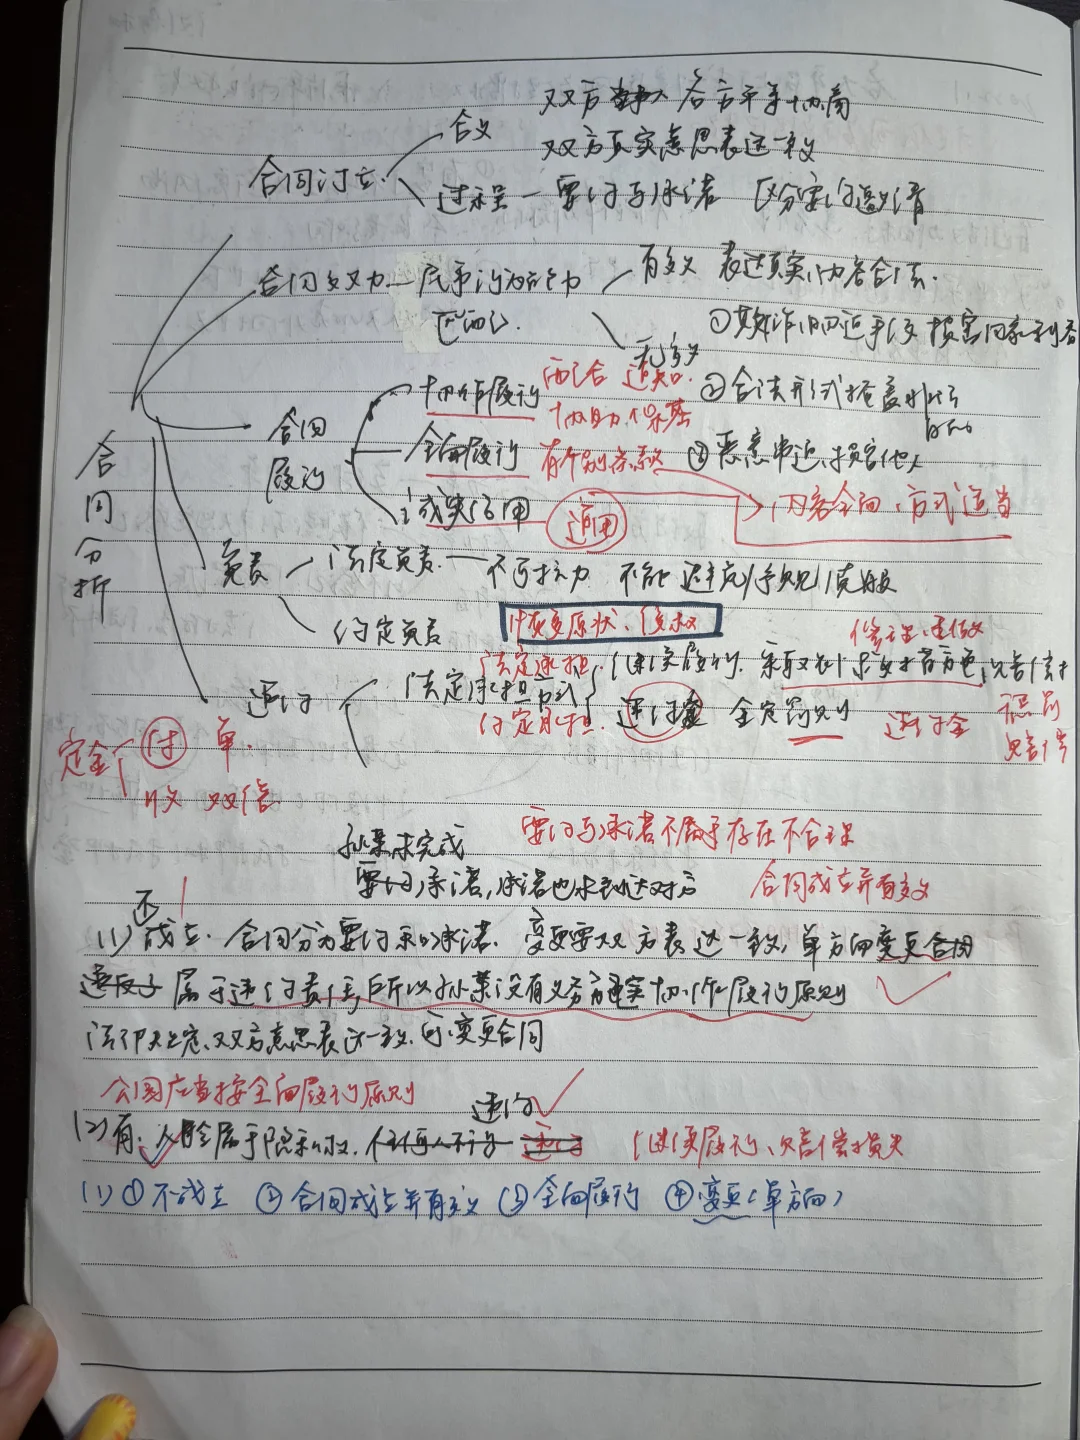 双方 各方平等协商
含义
双方真实意思表达一致
合同订立
过程－要约与承诺 区分要约邀请
有效 表达真实,内容合法.
合同效力
民事行为能力
①欺诈胁迫手段 损害国家利益
无效
配合 通知.
②合法形式掩盖非法目的
协作履约
协助.保密
合同履约
全面履约
有个别条款
③恶意串通,损害他人
诚实信用
适用
内容全面、方式适当
合同分析
免责
法定免责－不可抗力 不能
约定免责
恢复原状、
修理.重做
法定承担.
继续履约.
违约
法定承担方式
约定承担.
违约金 定罚则
违约金
赔偿
定金
付 单.
收 双倍
要约与承诺不属于存在不合理
孙某未完成
要约承诺,承诺也未到达对方
合同成立并有效
否
(1)成立. 合同分为要约和承诺. 变更要双方表达一致,单方面变更合同
属于违约责任,所以孙某没有义务 协作履约原则
双方意思表达一致.可变更合同
公园应当按全面履约原则
违约
(2)有. 属于隐私权.
继续履约、赔偿损失
(1)①不成立 ②合同成立并有效 ③全面履约 ④变更(单方面)